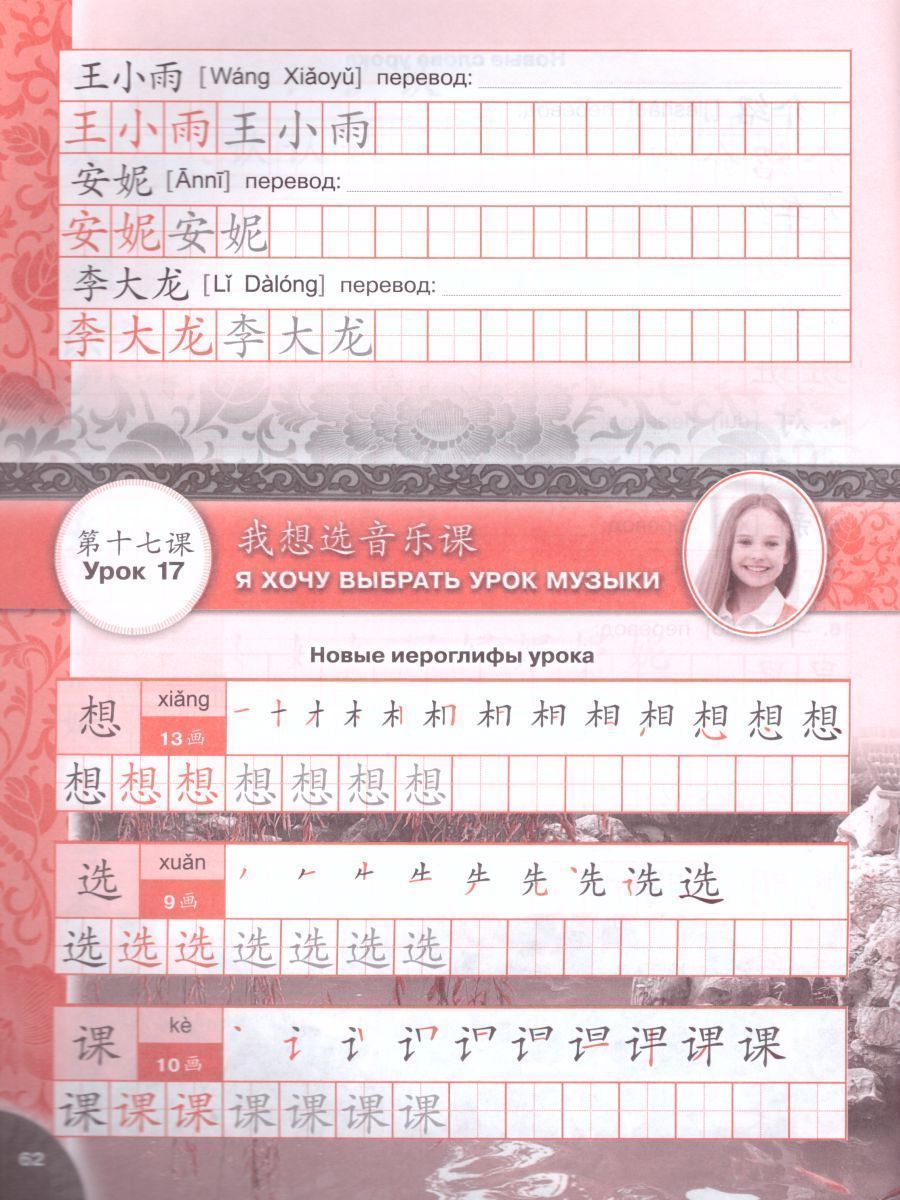 王小雨 [Wáng Xiǎoyǔ] перевод:
王小雨王小雨
安妮 [Ānnī] перевод:
安妮安妮
李大龙 [Lǐ Dàlóng] перевод:
李大龙李大龙
第十七课
Урок 17
我想选音乐课
Я ХОЧУ ВЫБРАТЬ УРОК МУЗЫКИ
Новые иероглифы урока
想 xiǎng
13 画
想想想想想想想
选 xuǎn
9 画
选选选选选选选
课 kè
10 画
课课课课课课课
62